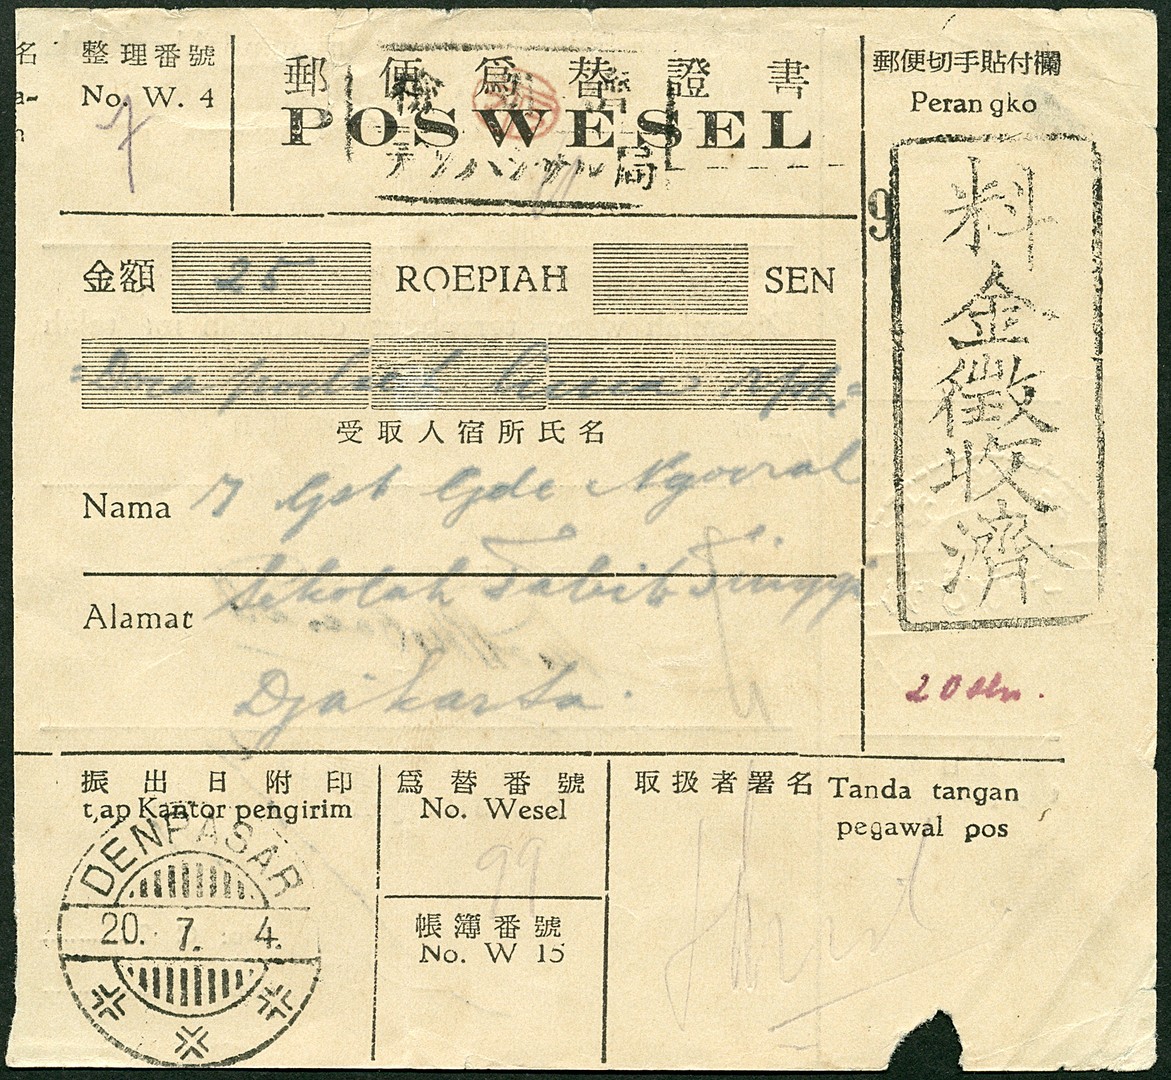 名
整理番號
No. W. 4
7
郵便爲替證書
POSWESEL
デンパサル局
郵便切手貼付欄
Perangko
9
料金徵收濟
20 sen.
金額 25 ROEPIAH SEN
=Doea poeloeh lima rph=
受取人宿所氏名
Nama I Gst Gde Ngoerah
Alamat Sekolah Tabib Tinggi
Djakarta.
振出日附印
t,ap Kantor pengirim
DENPASAR
20. 7. 4.
爲替番號
No. Wesel
99
帳簿番號
No. W 15
取扱者署名 Tanda tangan
pegawai pos